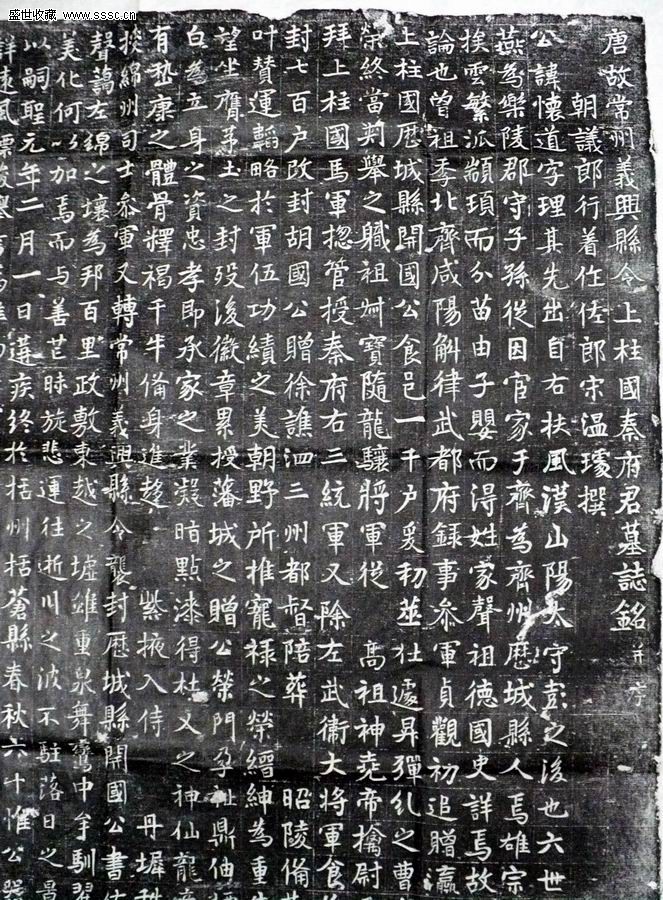 盛世收藏 www.sssc.cn
唐故常州義興縣令上柱國秦府君墓誌銘并序
朝議郎行著作佐郎宋溫璩撰
公諱懷道字理其先出自右扶風漢山陽太守彭之後也六世
燕為樂陵郡守子孫從因官家于齊為齊州歷城縣人焉雄宗
挨雲繁派顓頊而分苗由子嬰而得姓家聲祖德國史詳焉故
論也曾祖季北齊咸陽斛律武都府録事叅軍貞觀初追贈瀛
上柱國歷城縣開國公食邑一千户爰初莁仕遽昇彈糺之曹
榮終當剃舉之軄祖叔寶隨龍驤將軍從 高祖神堯帝擒尉
拜上柱國馬軍惣管授秦府右三統軍又除左武衛大將軍食
封七百户改封胡國公贈徐譙泗三州都督陪葬 昭陵俻
叶賛運韜略於軍伍功績之美朝野所推寵禄之榮縉紳為重
望坐膺茅土之封歿後徽章累授藩城之贈公榮門孕祉鼎
白為立身之資忠孝即承家之業凝暗點漆得杜乂之神仙龍
有嵇康之體骨釋褐千牛俻身進趍 紫掖入侍 丹墀
掞綿州司士叅軍又轉常州義興縣令襲封歷城縣開國公書
聲藹左綿之壤為邦百里政敷東越之墟雖重泉舞鸞中牟馴翟
美化何以加焉而与善芒昧旋悲運往逝川之波不駐落日之景
以嗣聖元年二月一日遘疾終於括州括蒼縣春秋六十惟公器
詳遠風標